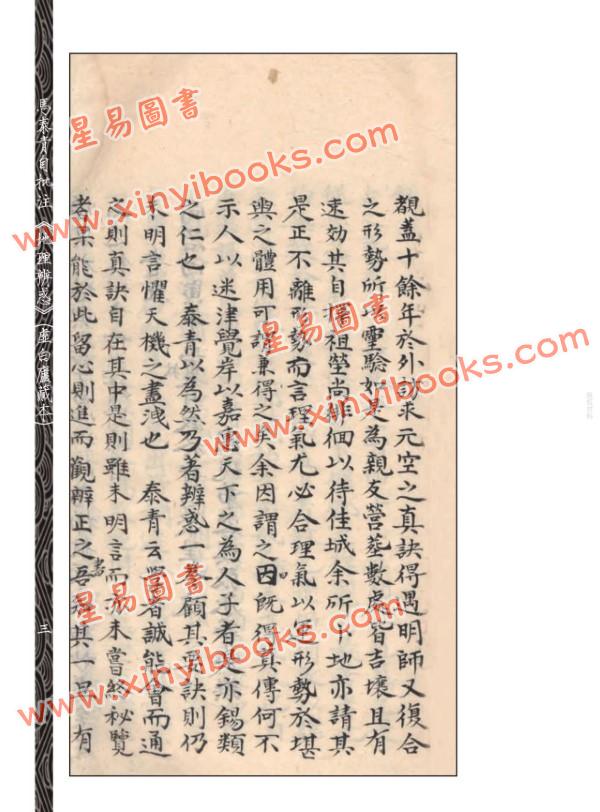 觀蓋十餘年於外訪求元空之真訣得遇明師又復合
之形勢所以靈驗如是為親友營塟數處皆吉壤且有
速効其自擇祖塋尚徘徊以待佳城余所卜地亦請其
是正不離形勢而言理氣尤必合理氣以言形勢於堪
輿之體用可謂兼得之矣余因謂之因既得真傳何不
示人以迷津覺岸以嘉惠天下之為人子者是亦錫類
之仁也 泰青以為然乃著辨惑一書顧其要訣則仍
未明言懼天機之盡洩也 泰青云學者誠能會而通
之則真訣自在其中是則雖未明言而亦未嘗終秘覽
者果能於此留心則進而觀辨正之書吾其一見有
馬泰青自批注《地理辨惑》(虛白廬藏本)
三
星易圖書
www.xinyibooks.com
星易圖書
www.xinyibooks.com
星易圖書
www.xinyibooks.com